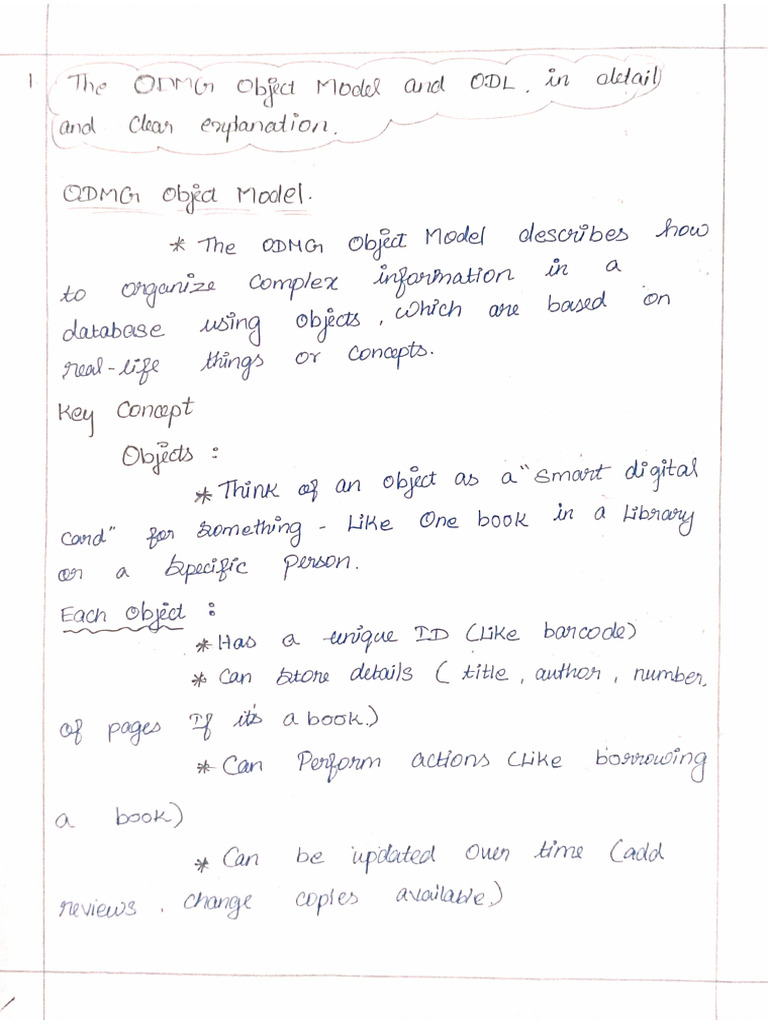 1 The ODMG Object Model and ODL, in detail
and clear explanation.
ODMG Object Model.
* The ODMG Object Model describes how
to organize complex information in a
database using objects, which are based on
real-life things or concepts.
Key Concept
Objects :
* Think of an object as a "smart digital
card" for something - Like One book in a Library
or a specific person.
Each Object :
* Has a unique ID (Like barcode)
* Can store details ( title, author, number
of pages If it's a book.)
* Can Perform actions (Like borrowing
a book)
* Can be updated Over time (add
reviews, change copies available)